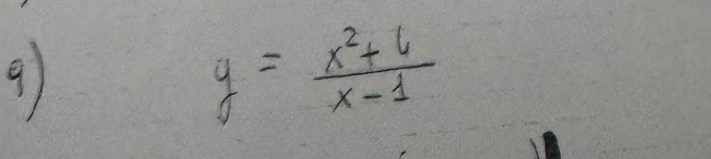 9) y = \frac{x^2+4}{x-1}